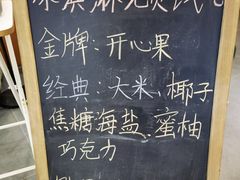 金牌：开心果
经典：大米、椰子
焦糖海盐、蜜柚
巧克力